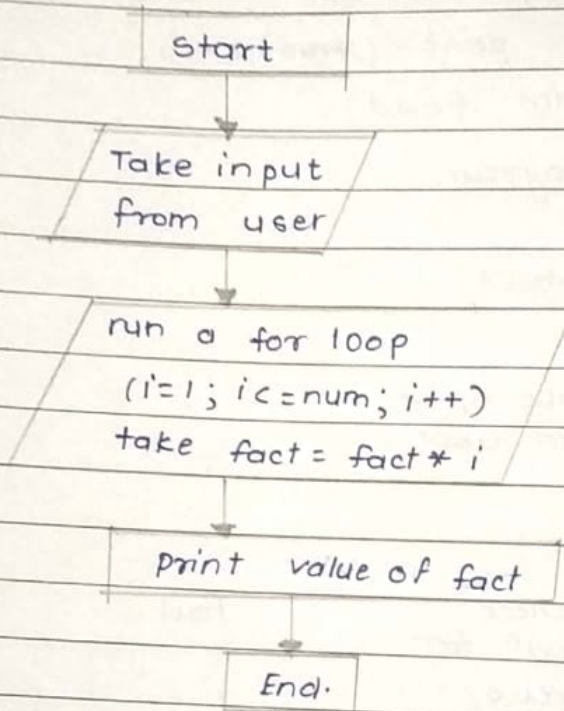 Start
Take input
from user
run a for loop
(i=1; i<=num; i++)
take fact = fact * i
print value of fact
End.